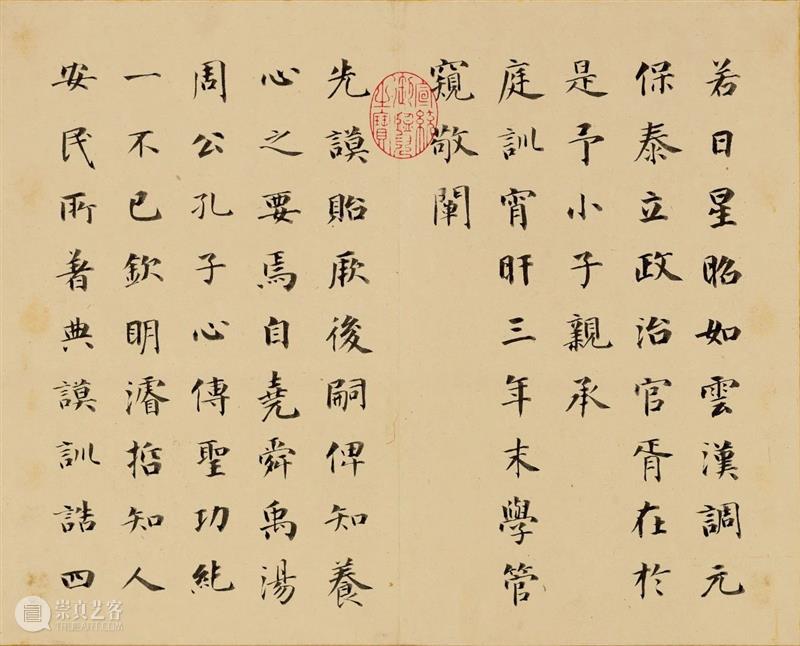 若日星昭如雲漢調元
保泰立政治官胥在於
是予小子親承
庭訓宵旰三年末學管
窺敬闡
先謨貽厥後嗣俾知養
心之要焉自堯舜禹湯
周公孔子心傳聖功純
一不已欽明濬哲知人
安民所著典謨訓誥四
宣統御覽之寶
崇真艺客